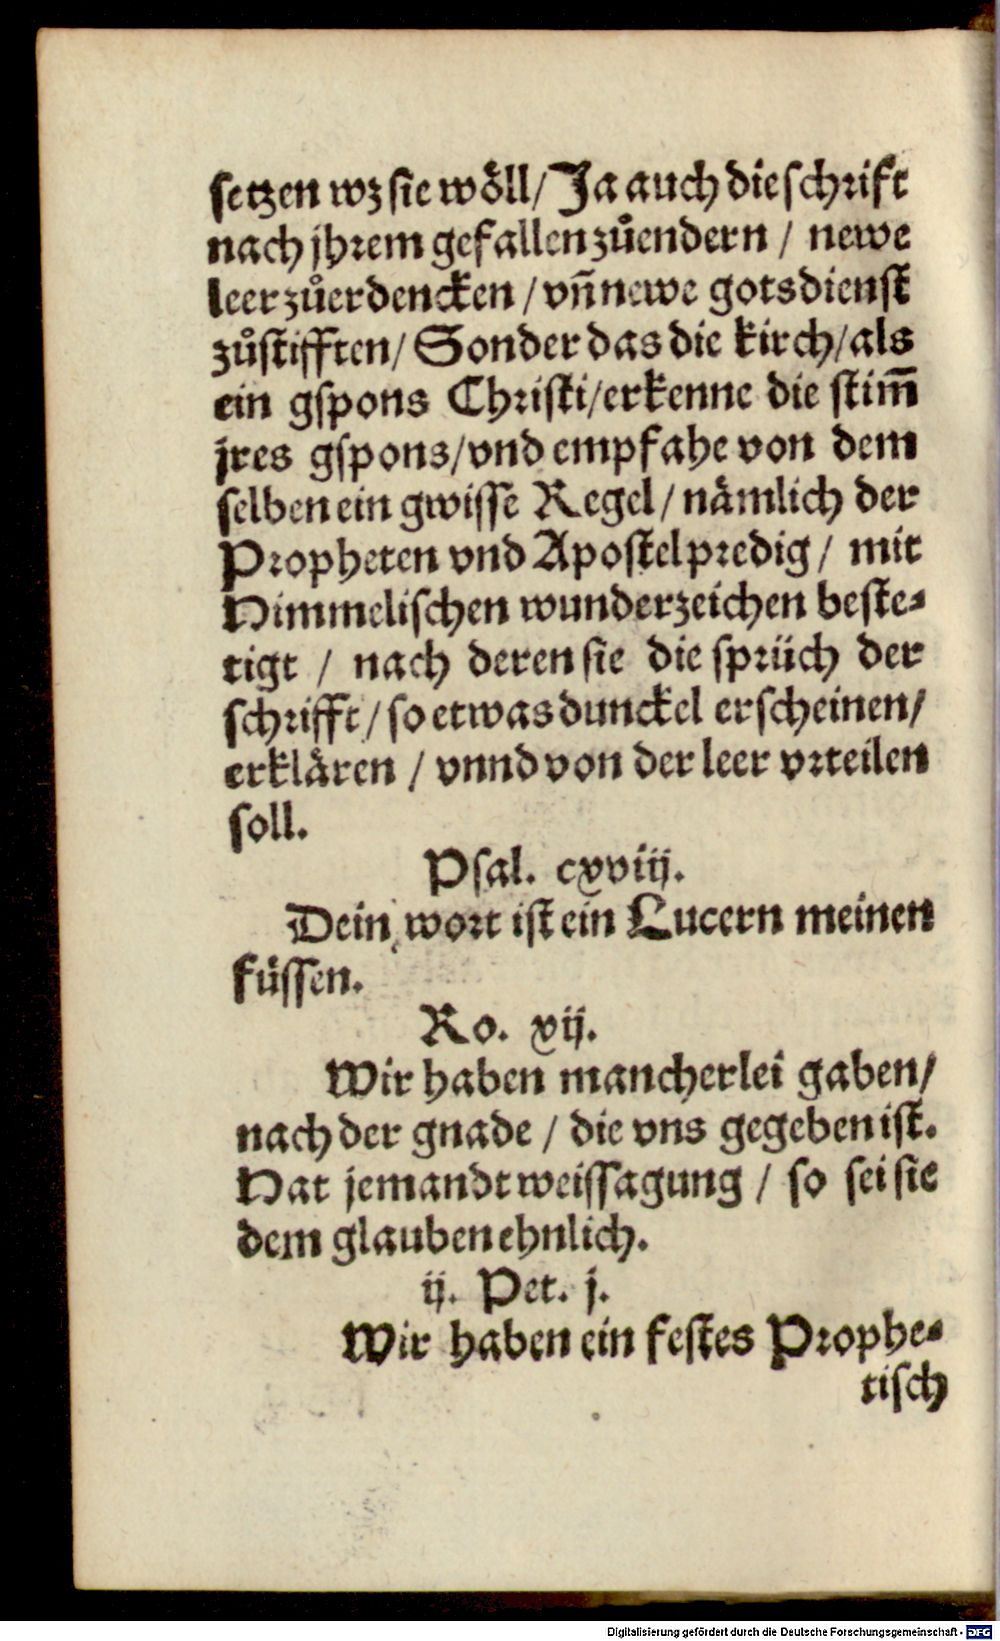 setzen wz sie wöll/ Ja auch die schrift
nach jhrem gefallen zůendern / newe
leer zůerdencken / vñ newe gotsdienst
zůstifften/ Sonder das die kirch/ als
ein gspons Christi/ erkenne die stim̃
jres gspons/ vnd empfahe von dem
selben ein gwisse Regel / nämlich der
Propheten vnd Apostel predig / mit
Himmelischen wunderzeichen beste-
tigt / nach deren sie die sprüch der
schrifft / so etwas dunckel erscheinen/
erklären / vnnd von der leer vrteilen
soll.
Psal. cxviij.
Dein wort ist ein Lucern meinen
füssen.
Ro. xij.
Wir haben mancherlei gaben/
nach der gnade / die vns gegeben ist.
Hat jemandt weissagung / so sei sie
dem glauben ehnlich.
ij. Pet. j.
Wir haben ein festes Prophe-
tisch
Digitalisierung gefördert durch die Deutsche Forschungsgemeinschaft - DFG